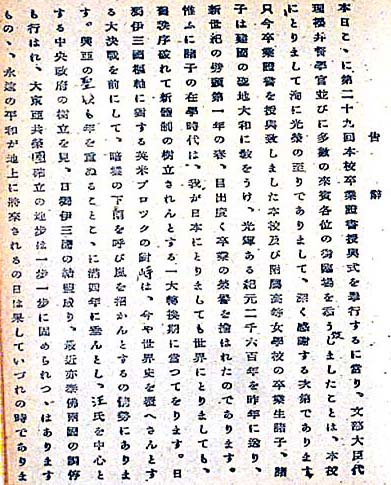 告辭
本日こゝに第二十九回本校卒業證書授與式を擧行するに當り、文部大臣代
理櫻井督學官並びに多數の來賓各位の御臨場を忝うしましたことは、本校
にとりまして洵に光榮の至りでありまして、深く感謝する次第であります。
只今卒業證書を授與致しました本校及び附屬高等女學校の卒業生諸子、諸
子は建國の聖地大和に敎をうけ、光輝ある紀元二千六百年を昨年に送り、
新世紀の劈頭第一年の春、目出度く卒業の榮譽を擔はれたのであります。
惟ふに諸子の在學時代は、我が日本にとりましても世界にとりましても、
舊秩序破れて新體制の樹立されんとする一大轉換期に當つてをります。日
獨伊三國樞軸に對する英米ブロックの對峙は、今や世界史を覆へさんとす
る大決戰を前にして、暗雲の下雨を呼び嵐を招かんとするの情勢にありま
す。興亞の聖戰も年を重ねることこゝに滿四年に垂んとし、汪氏を中心と
する中央政府の樹立を見、日獨伊三國の結盟成り、最近亦泰佛兩國の調停
も行はれ、大東亞共榮圈確立の地步は一步一步に固められつゝはあります
ものゝ、永遠の平和が地上に將來されるの日は果していづれの時でありま